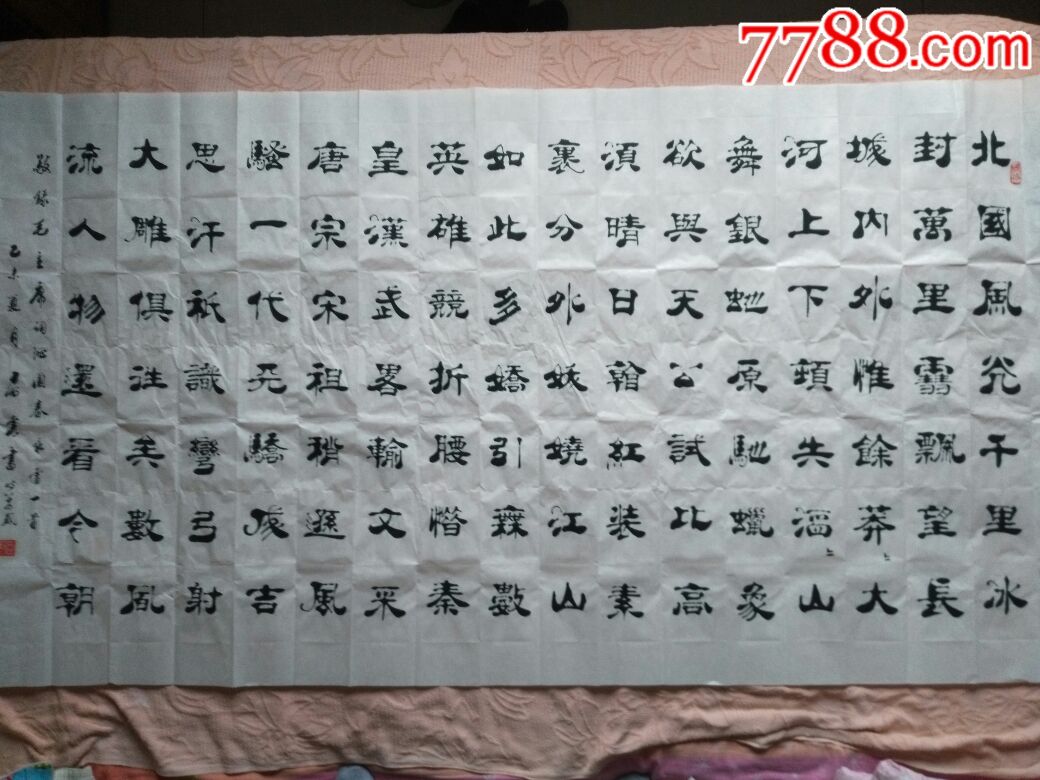 7788.com
北國風光千里冰
封萬里雪飄望長
城內外惟餘莽〻大
河上下頓失滔〻山
舞銀蛇原馳蠟象
欲與天公試比高
須晴日看紅裝素
裹分外妖嬈江山
如此多嬌引無數
英雄競折腰惜秦
皇漢武畧輸文采
唐宗宋祖稍遜風
騷一代天驕成吉
思汗祇識彎弓射
大雕俱往矣數風
流人物還看今朝
敬錄毛主席詞沁園春詠雪一首
乙未夏月